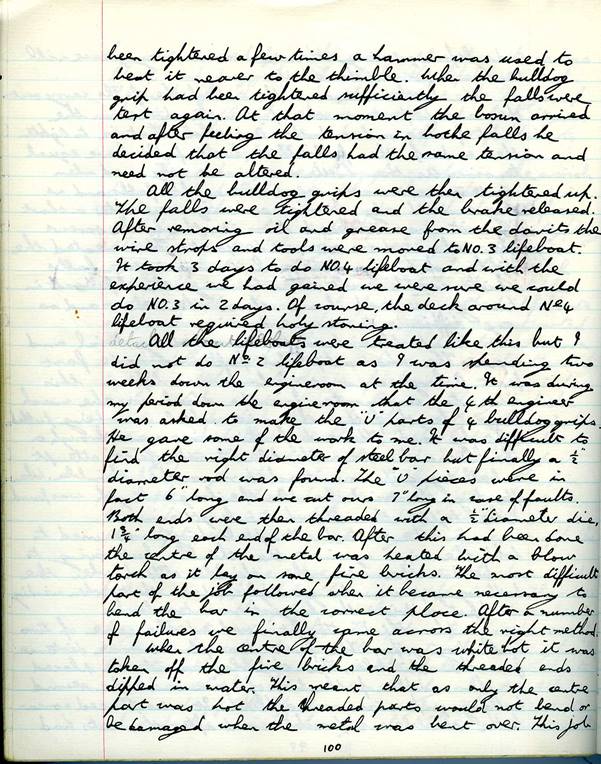 been tightened a few times a hammer was used to
beat it nearer to the thimble. When the bulldog
grip had been tightened sufficiently the falls were
test again. At that moment the bosun arrived
and after feeling the tension in bothe falls he
decided that the falls had the same tension and
need not be altered.
All the bulldog grips were then tightened up.
The falls were tightened and the brake released.
After removing oil and grease from the davits the
wire strops and tools were moved to NO.3 lifeboat.
It took 3 days to do NO.4 lifeboat and with the
experience we had gained we were sure we could
do NO.3 in 2 days. Of course, the deck around No4
lifeboat required holy stoning.
All the lifeboats were treated like this but I
did not do No 2 lifeboat as I was spending two
weeks down the engineroom at the time. It was during
my period down the engineroom that the 4th engineer
was asked to make the "U" parts of 4 bulldog grips.
He gave some of the work to me. It was difficult to
find the right diameter of steel bar but finally a ½"
diameter rod was found. The "U" pieces were in
fact 6" long and we cut ours 7" long in case of faults.
Both ends were then threaded with a ½" diameter die,
1¾" long each end of the bar. After this had been done
the centre of the metal was heated with a blow
torch as it lay on some fire bricks. The most difficult
part of the job followed when it became necessary to
bend the bar in the correct place. After a number
of failures we finally came across the right method.
When the centre of the bar was white hot it was
taken off the fire bricks and the threaded ends
dipped in water. This meant that as only the centre
part was hot the threaded parts would not bend or
be damaged when the metal was bent over. This job
100